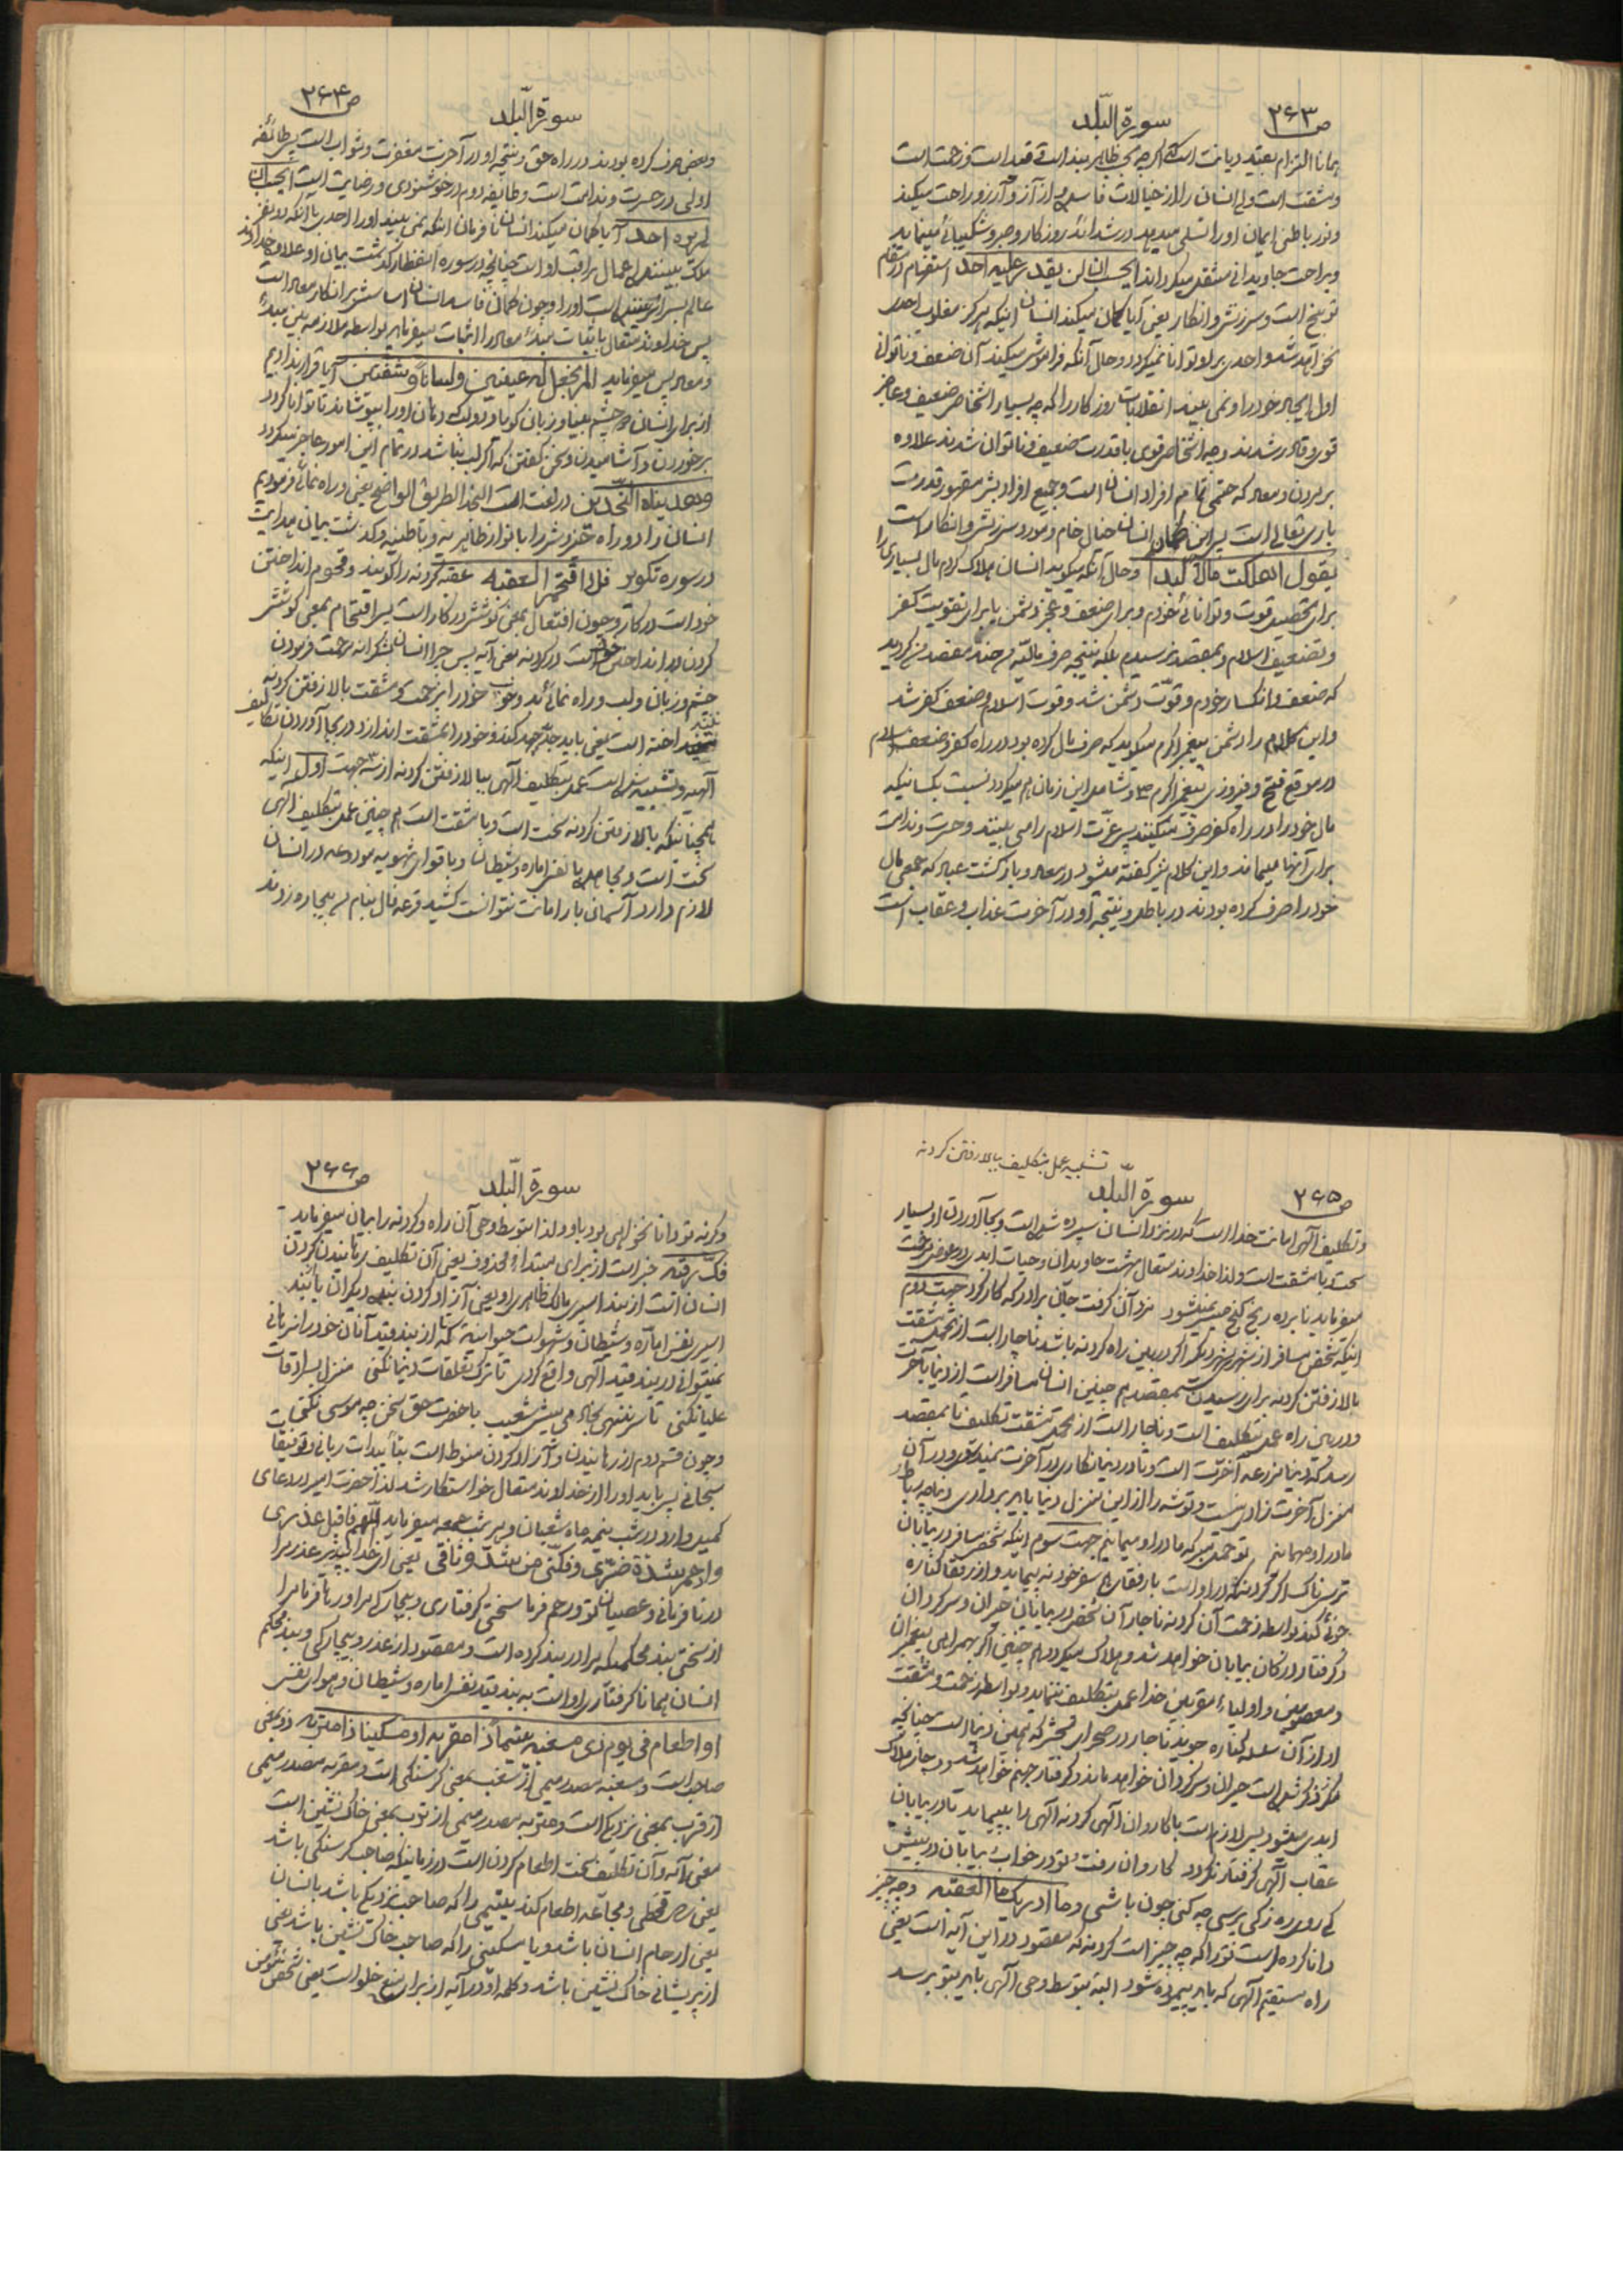 ص ۲۶۳
سورة البلد
همانا التزام بقید دیانت است که اگرچه بحسب ظاهر بند است و قید است و زحمت است
و مشقت است ولی انسان را از خیالات فاسده و از آز و آرزو راحت میکند
و نور باطنی ایمان او را تسلی میدهد در شدائد روزگار و صبر و شکیبائی مینماید
و براحت جاویدانی منتقل میگرداند ایحسب ان لن یقدر علیه احد استفهام در مقام
توبیخ است و سرزنش و انکار یعنی آیا گمان میکند انسان اینکه هرگز مغلوب احدی
نخواهد شد و احدی بر او توانا نمیگردد و حال آنکه فراموش میکند آن ضعف و ناتوانی
اول ایجاد خود را و نمی بیند انقلابات روزگار را که چه بسیار اشخاص ضعیف و عاجز
قوی و قادر شدند و چه اشخاص قوی با قدرت ضعیف و ناتوان شدند علاوه
بر مردن و معاد که حتمی تمام افراد انسان است و جمیع افراد بشر مقهور قدرت
باری تعالی است پس این گمان انسان خیال خام و مورد سرزنش و انکار است
یقول اهلکت مالا لبدا و حال آنکه میگوید انسان هلاک کردم مال بسیاری را
برای تحصیل قوت و توانائی خودم و برای ضعف و عجز دشمن یا برای تقویت کفر
و تضعیف اسلام و بمقصد نرسیدم بلکه نتیجه صرف مالیه بر ضد مقصد من گردید
که ضعف و انکسار خودم و قوّت دشمن شد و قوت اسلام و ضعف کفر شد
و این کلام را دشمن پیغمبر اکرم میگوید که صرف مال کرده بود در راه کفر و ضعف اسلام
در موقع فتح و فیروزی پیغمبر اکرم ص و شامل این زمان هم میگردد نسبت بکسانیکه
مال خود را در راه کفر صرف میکنند پس عزّت اسلام را می بینند و حسرت و ندامت
برای آنها میماند و این کلام نیز گفته میشود در معاد و بازگشت عباد که جمعی مال
خود را صرف کرده بودند در باطل و نتیجه او در آخرت عذاب و عقاب است
ص ۲۶۴
سورة البلد
و بعضی صرف کرده بودند در راه حق و نتیجه او در آخرت مغفرت و ثواب است پس طائفه
اولی در حسرت و ندامت است و طایفه دوم در خوشنودی و رضایت است ایحسب ان
لم یره احد آیا گمان میکند انسان نافرمان اینکه نمی بیند او را احدی با آنکه دو نفر
ملک بیننده اعمال مراقب او است چنانچه در سوره انفطار گذشت بیان او علاوه خداوند
عالم بسرائر بیننده است او را و چون گمان فاسد انسان اساسش بر انکار معاد است
پس خداوند متعال باثبات مبدء معاد را اثبات میفرماید بواسطه ملازمه بین مبدء
و معاد پس میفرماید الم نجعل له عینین و لسانا و شفتین آیا قرار ندادیم
از برای انسان دو چشم بینا و زبان گویا و دو لب که دهان او را بپوشاند تا توانا گردد
بر خوردن و آشامیدن و سخن گفتن که اگر لب نباشد در تمام این امور عاجز میگردد
و هدیناه النجدین در لغت است النجد الطریق الواضح یعنی و راه نمائی فرمودیم
انسان را دو راه خیر و شر را بانوار ظاهریه و باطنیه و گذشت بیان هدایت
در سوره تکویر فلا اقتحم العقبه عقبه گردنه را گویند و قحوم انداختن
خود است در کار و چون افتعال بمعنی کوشش در کار است پس اقتحام بمعنی کوشش
کردن در انداختن خود است در گردنه یعنی آیه پس چرا انسان بشکرانه مرحمت فرمودن
چشم و زبان و لب و راه نمائی بد و خوب خود را بزحمت و مشقت بالا رفتن گردنه
نینداخته است یعنی باید جدّ و جهد کند و خود را بمشقت اندازد در بجا آوردن تکالیف
الهیه و تشبیه شده است عمل بتکلیف الهی ببالا رفتن گردنه از سه جهت اول اینکه
همچنانکه بالا رفتن گردنه سخت است و با مشقت است هم چنین عمل بتکلیف الهی
سخت است و مجاهده با نفس اماره و شیطان و با قوای شهویه مودوعه در انسان
لازم دارد آسمانی بار امانت نتوانست کشید قرعه فال بنام من بیچاره زدند
تشبیه عمل بتکلیف ببالا رفتن گردنه
ص ۲۶۵
سورة البلد
و تکلیف الهی امانت خدا است که در نزد انسان سپرده شده است و بجا آوردن او بسیار
سخت و با مشقت است و لذا خداوند متعال بهشت جاویدان و حیات ابدی در عوض مرحمت
میفرماید نابرده رنج گنج میسر نمیشود مزد آن گرفت جان برادر که کار کرد جهت دوم
اینکه شخص مسافر از شهر بشهر دیگر اگر در بین راه گردنه باشد ناچار است از تحمل مشقت
بالا رفتن گردنه برای رسیدن بمقصد هم چنین انسان مسافر است از دنیا بآخرت
و در بین راه عمل بتکلیف است و ناچار است از تحمل مشقت تکلیف تا بمقصد
رسد که دنیا مزرعه آخرت است و تا در دنیا نکاری در آخرت نمیدروی و در آن
منزل آخرت زادی نیست و توشه را از این منزل دنیا باید برداری دنیا چه رباط
ما در او مهمانیم تو ظن مبر که ما در او میمانیم جهت سوم اینکه شخص مسافر در بیابان
ترسناک اگر گردنه در راه او است با رفقای هم سفر خود نه پیماید و از رفقا کناره
جوئی کند بواسطه زحمت آن گردنه ناچار آن شخص در بیابان حیران و سرگردان
و گرفتار درندگان بیابان خواهد شد و هلاک میگردد هم چنین اگر بهمراهی پیغمبران
و معصومین و اولیاء مقربین خدا عمل بتکلیف ننماید و بواسطه زحمت و مشقت
او از آن سلسله کناره جوید ناچار در صحرای محشر که همین دنیا است چنانچه
مکرّر ذکر شده است حیران و سرگردان خواهد ماند و گرفتار جهنم خواهد شد و دچار هلاک
ابدی میشود پس لازم است با کاروان الهی گردنه الهی را بپیماید تا در بیابان
عقاب الهی گرفتار نگردد کاروان رفت و تو در خواب و بیابان در پیش
کی روی ره ز که پرسی چه کنی چون باشی و ما ادریک ما العقبه و چه چیز
دانا کرده است تو را که چه چیز است گردنه که مقصود در این آیه است یعنی
راه مستقیم الهی که باید پیموده شود البته بتوسط وحی الهی باید بتو برسد
ص ۲۶۶
سورة البلد
و گرنه تو دانا نخواهی بود باو و لذا بتوسط وحی آن راه و گردنه را بیان میفرماید
فکّ رقبه خبر است از برای مبتداء محذوف یعنی آن تکلیف رهانیدن گردن
انسان است از بند اسیری مالک ظاهری او یعنی آزاد کردن بنده دیگران یا بند
اسیری نفس اماره و شیطان و شهوات حیوانیه که تا از بند قید آنان خود را نرهانی
نمیتوانی در بند قید الهی واقع گردی تا ترک تعلقات دنیا نکنی منزل بسرادقات
علیا نکنی تا سر ننهی بجای می پیش شعیب با حضرت حق سخن چه موسی نکنی
و چون قسم دوم از رهانیدن و آزاد کردن منوط است بتأییدات ربانی و توفیقات
سبحانی پس باید او را از خداوند متعال خواستگار شد لذا حضرت امیر در دعای
کمیل وارد در شب نیمه ماه شعبان و هر شب جمعه میفرماید اللهم فاقبل عذری
و ارحم شدة ضرّی و فکّنی من شدّ وثاقی یعنی ای خدا بپذیر عذر مرا
در نافرمانی و عصیان تو و رحم فرما سختی گرفتاری و بیچارگی مرا و رها فرما مرا
از سختی بند محکمیکه مرا در بند کرده است و مقصود از عذر و بیچارگی و بند محکم
انسان همانا گرفتاری او است به بند قید نفس اماره و شیطان و هوای نفس
او اطعام فی یوم ذی مسغبه یتیما ذا مقربه او مسکینا ذا متربه ذو بمعنی
صاحب است و مسغبه مصدر میمی از سغب بمعنی گرسنگی است و مقربه مصدر میمی
از قرب بمعنی نزدیک است و متربه مصدر میمی از ترب بمعنی خاک نشین است
معنی آیه و آن تکلیف سخت اطعام کردن است در زمانیکه صاحب گرسنگی باشد
یعنی در قحطی و مجاعه اطعام کند یتیمی را که صاحب نزدیکی باشد بانسان
یعنی ارحام انسان باشد و یا مسکینی را که صاحب خاک نشین باشد یعنی
از پریشانی خاک نشین باشد و کلمه او در آیه از برای منع خلو است یعنی شخص مؤمن